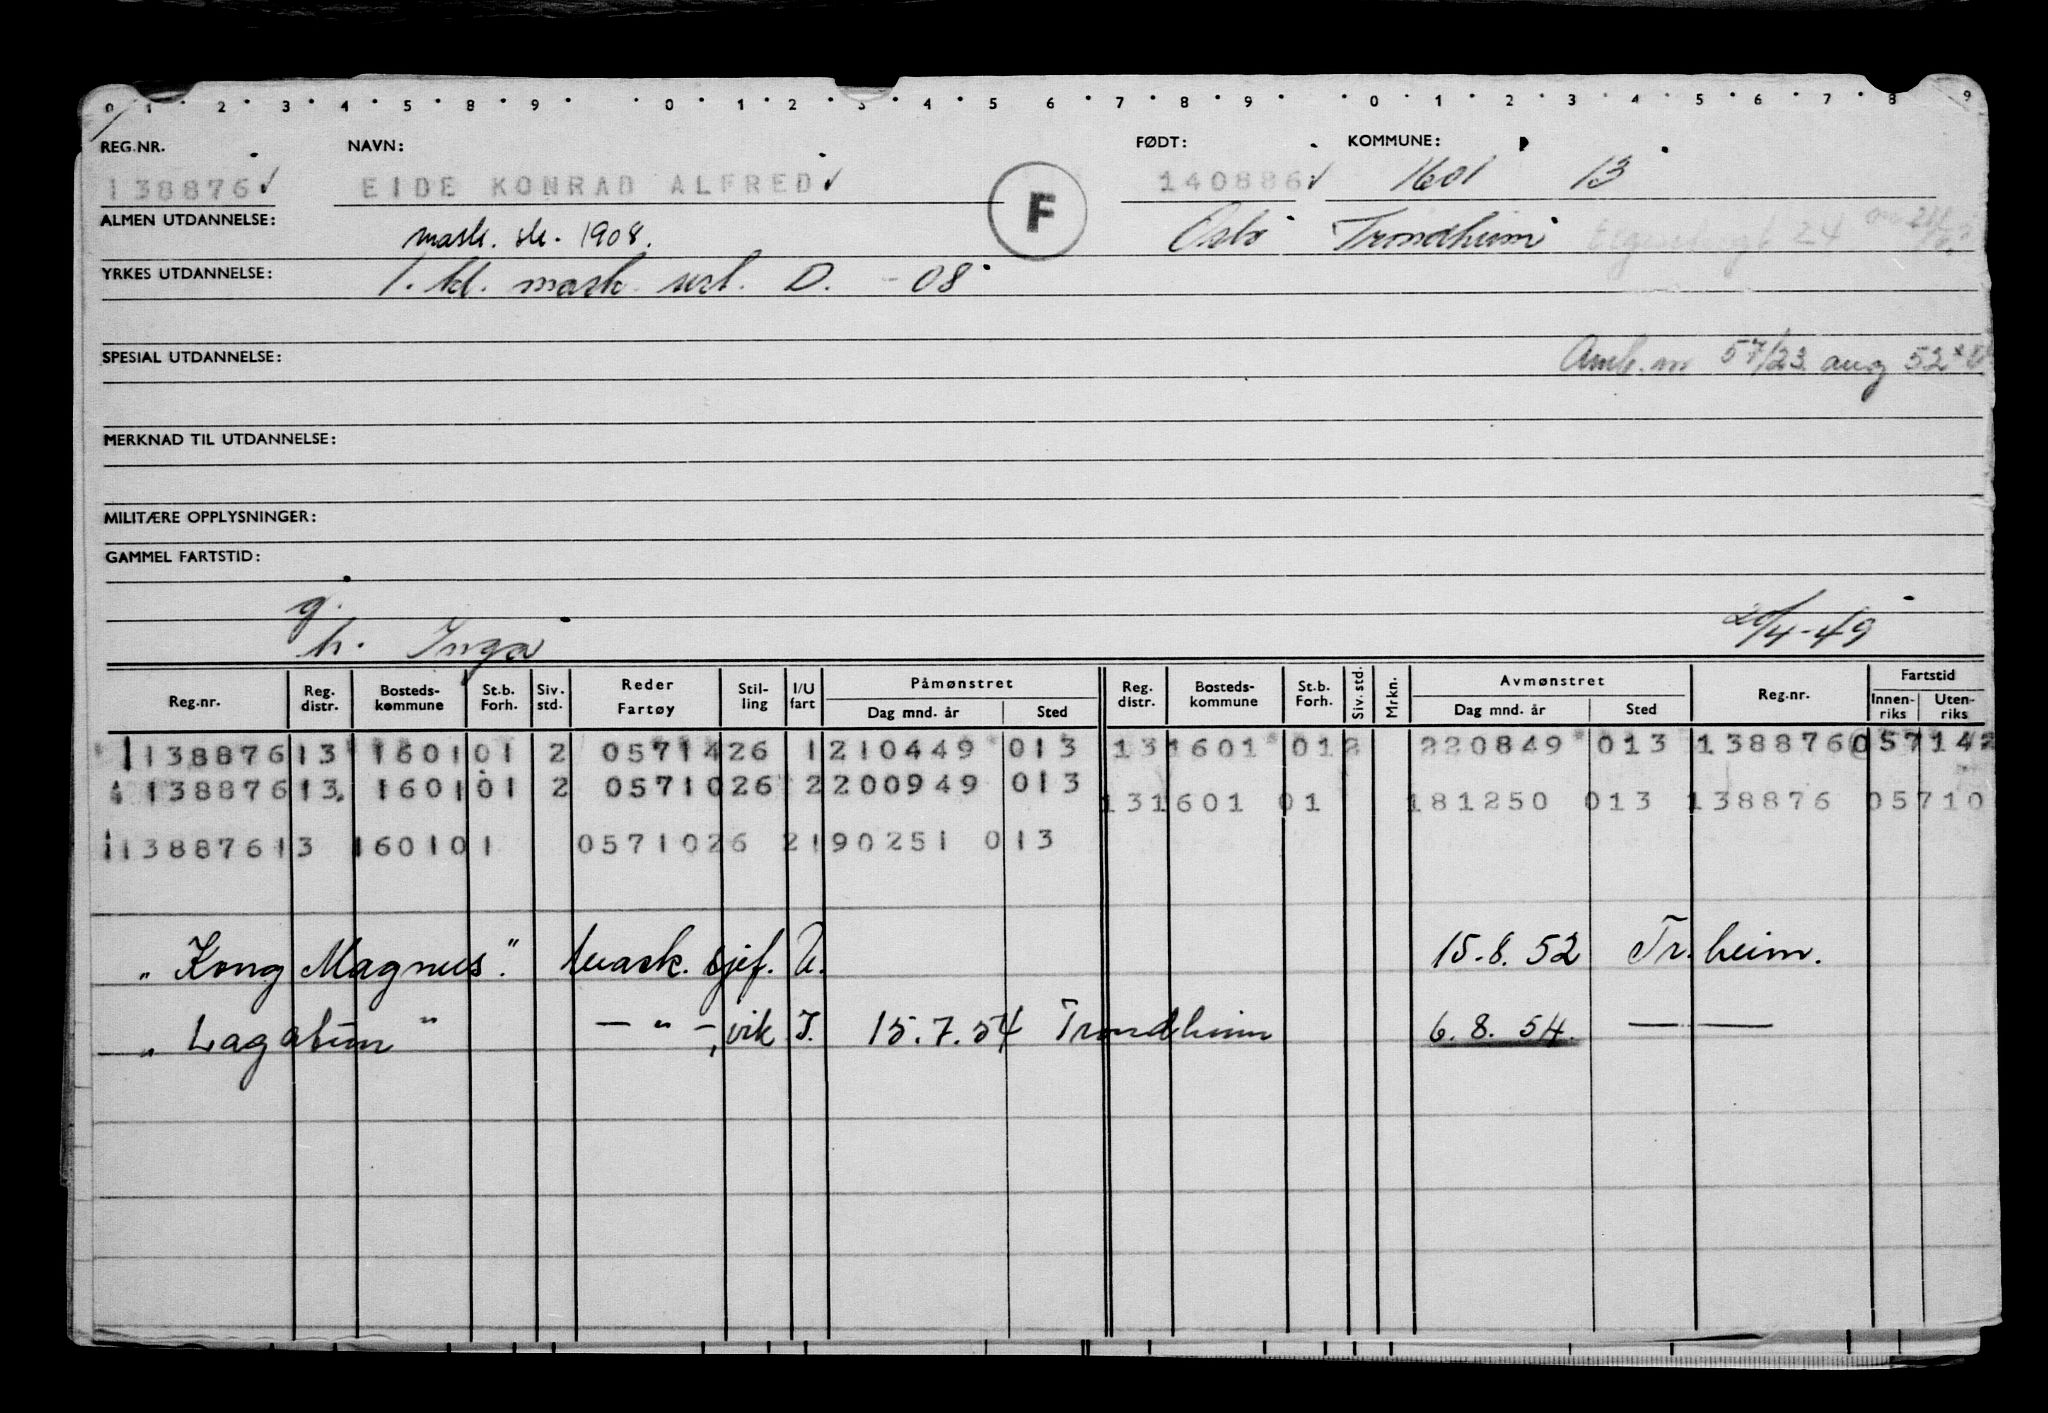 0 1 2 3 4 5 8 9 0 1 2 3 4 5 6 7 8 9 0 1 2 3 4 5 6 7 8 9
REG.NR. NAVN: FØDT: KOMMUNE:
138876 EIDE KONRAD ALFRED F 140886 1601 13
ALMEN UTDANNELSE: mask. sk. 1908. Oslo Trondheim 24
YRKES UTDANNELSE: 1. kl. mask. sert. D. -08
SPESIAL UTDANNELSE: 57/23 aug 52
MERKNAD TIL UTDANNELSE:
MILITÆRE OPPLYSNINGER:
GAMMEL FARTSTID:
g.
h. Inga 20/4-49
Reg.nr. Reg. distr. Bosteds-kommune St.b. Forh. Siv. std. Reder Fartøy Stil-ling I/U fart Påmønstret Dag mnd. år Sted Reg. distr. Bosteds-kommune St.b. Forh. Siv. std. Mrkn. Avmønstret Dag mnd. år Sted Reg.nr. Fartstid Innen-riks Uten-riks
138876 13 1601 01 2 05714 26 1 210449 013 13 1601 01 2 220849 013 138876 057142
138876 13 1601 01 2 05710 26 2 200949 013 13 1601 01 181250 013 138876 05710
138876 13 1601 01 05710 26 2 190251 013
"Kong Magnus". mask. sjef. U. 15.8.52 Tr.heim.
"Lagatun" — " —, vik I. 15.7.54 Trondheim 6.8.54. — —